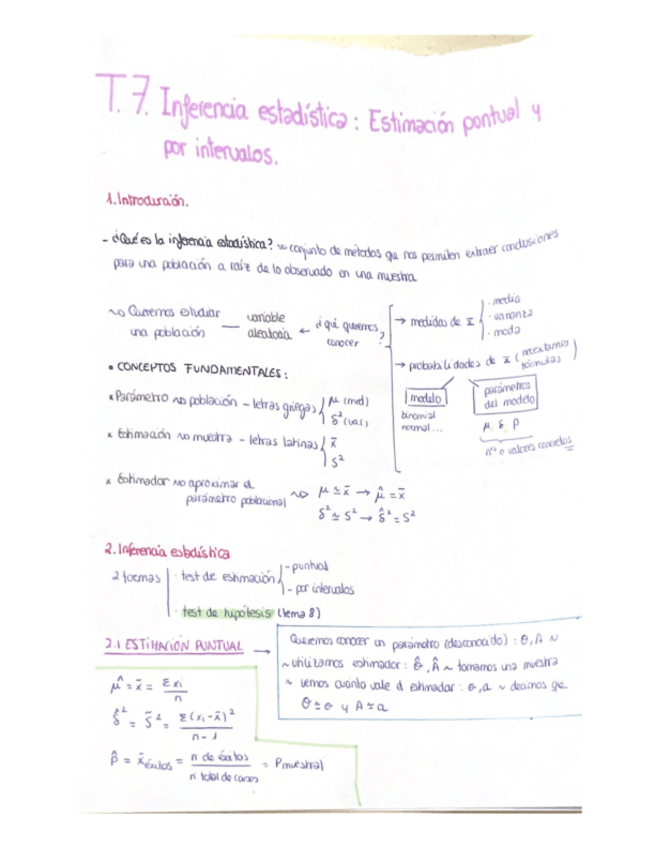 T.7. Inferencia estadística: Estimación puntual y
por intervalos.
1. Introducción.
- ¿Qué es la inferencia estadística? ~ conjunto de métodos que nos permiten extraer conclusiones
para una población a raíz de lo observado en una muestra
~ Queremos estudiar
una población — variable
aleatoria ← ¿qué queremos
conocer?
→ medidas de x̄
· media
· varianza
· moda
→ probabilidades de x̄ (necesitamos
fórmulas)
modelo
binomial
normal...
parámetros
del modelo
μ δ P
nºs o valores concretos
• CONCEPTOS FUNDAMENTALES:
x Parámetro ~ población - letras griegas
μ (med)
δ² (var)
x Estimación ~ muestra - letras latinas
x̄
S²
x Estimador ~ aproximar el
parámetro poblacional ~ μ ≃ x̄ → μ̂ = x̄
δ² ≃ S² → δ̂² = S²
2. Inferencia estadística
2 formas
· test de estimación
- puntual
- por intervalos
· test de hipótesis (tema 8)
2.1 ESTIMACIÓN PUNTUAL →
Queremos conocer un parámetro (desconocido) : θ, A ~
~ utilizamos estimador : θ̂, Â ~ tomamos una muestra
~ vemos cuánto vale el estimador : θ, a ~ decimos que
θ ≃ θ y A ≃ a
μ̂ = x̄ = Σxi / n
δ̂² = S̄² = Σ(xi - x̄)² / n - 1
p̂ = x̄ éxitos = n de éxitos / n total de casos = P muestral